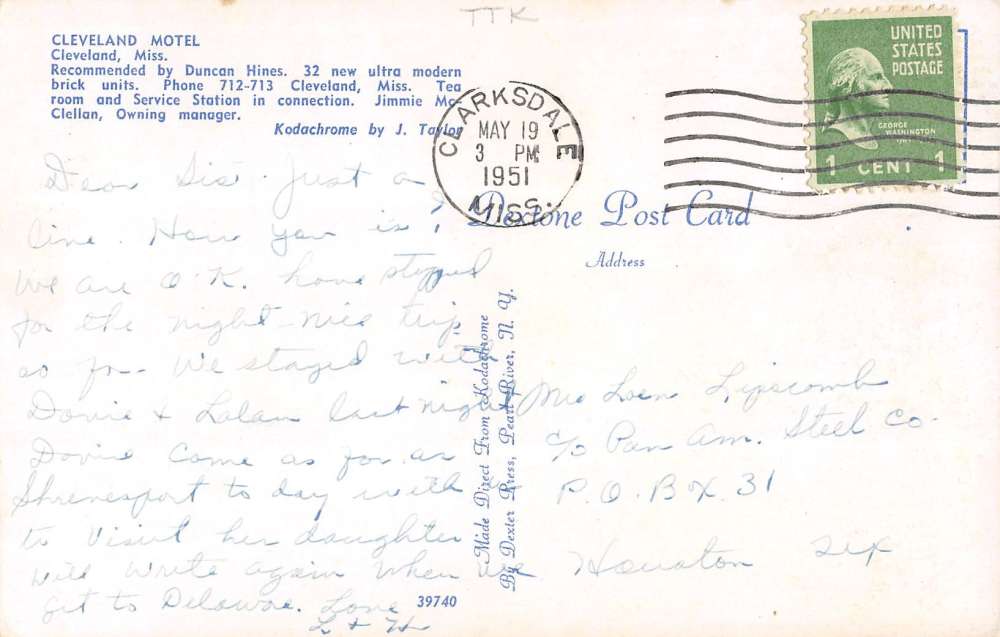 TTK
CLEVELAND MOTEL
Cleveland, Miss.
Recommended by Duncan Hines. 32 new ultra modern
brick units. Phone 712-713 Cleveland, Miss. Tea
room and Service Station in connection. Jimmie Mc-
Clellan, Owning manager.
Kodachrome by J. Taylor
CLARKSDALE
MAY 19
3 PM
1951
MISS.
UNITED
STATES
POSTAGE
GEORGE
WASHINGTON
1 CENT 1
Dextone Post Card
Address
Dear Sis. Just a
line. How you is?
We are O.K. have stopped
for the night - nice trip
so far. We stayed with
Dovie & last night
Dovie came as far as
Shreveport to day with us
to visit her daughter
will write again when we
get to Delaware. Love
L & H
39740
Made Direct From Kodachrome
By Dexter Press, Pearl River, N. Y.
Lipscomb
c/o Pan Am. Steel Co.
P.O. Box 31
Houston